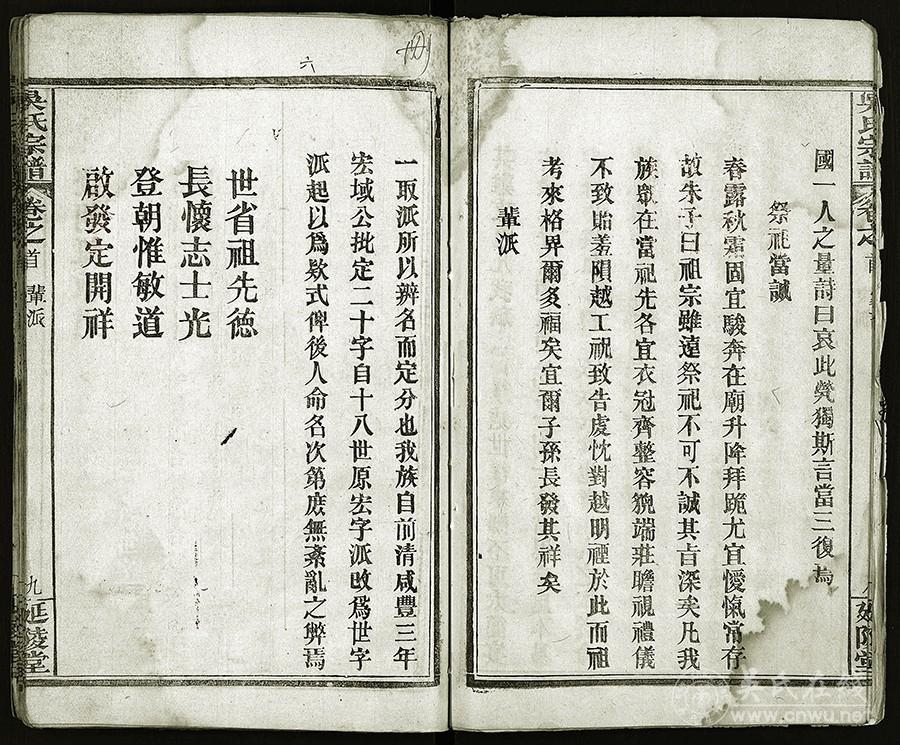 國一人之量詩曰哀此煢獨斯言當三復焉
祭祀當誠
春露秋霜固宜駿奔在廟升降拜跪尤宜僾愾常存
故朱子曰祖宗雖遠祭祀不可不誠其旨深矣凡我
族眾在當祀先各宜衣冠齊整容貌端莊瞻視禮儀
不致貽羞隕越工祝致告虔忱對越明禋於此而祖
考來格畀爾多福矣宜爾子孫長發其祥矣
輩派
吳氏宗譜
卷之首
延陵堂
一取派所以辨名而定分也我族自前清咸豐三年
宏域公批定二十字自十八世原宏字派改為世字
派起以為欵式俾後人命名次第庶無紊亂之弊焉
世省祖先德
長懷志士光
登朝惟敏道
啟發定開祥
吳氏宗譜
卷之首
輩派
九
延陵堂
六
吳氏在線
www.cnwu.net